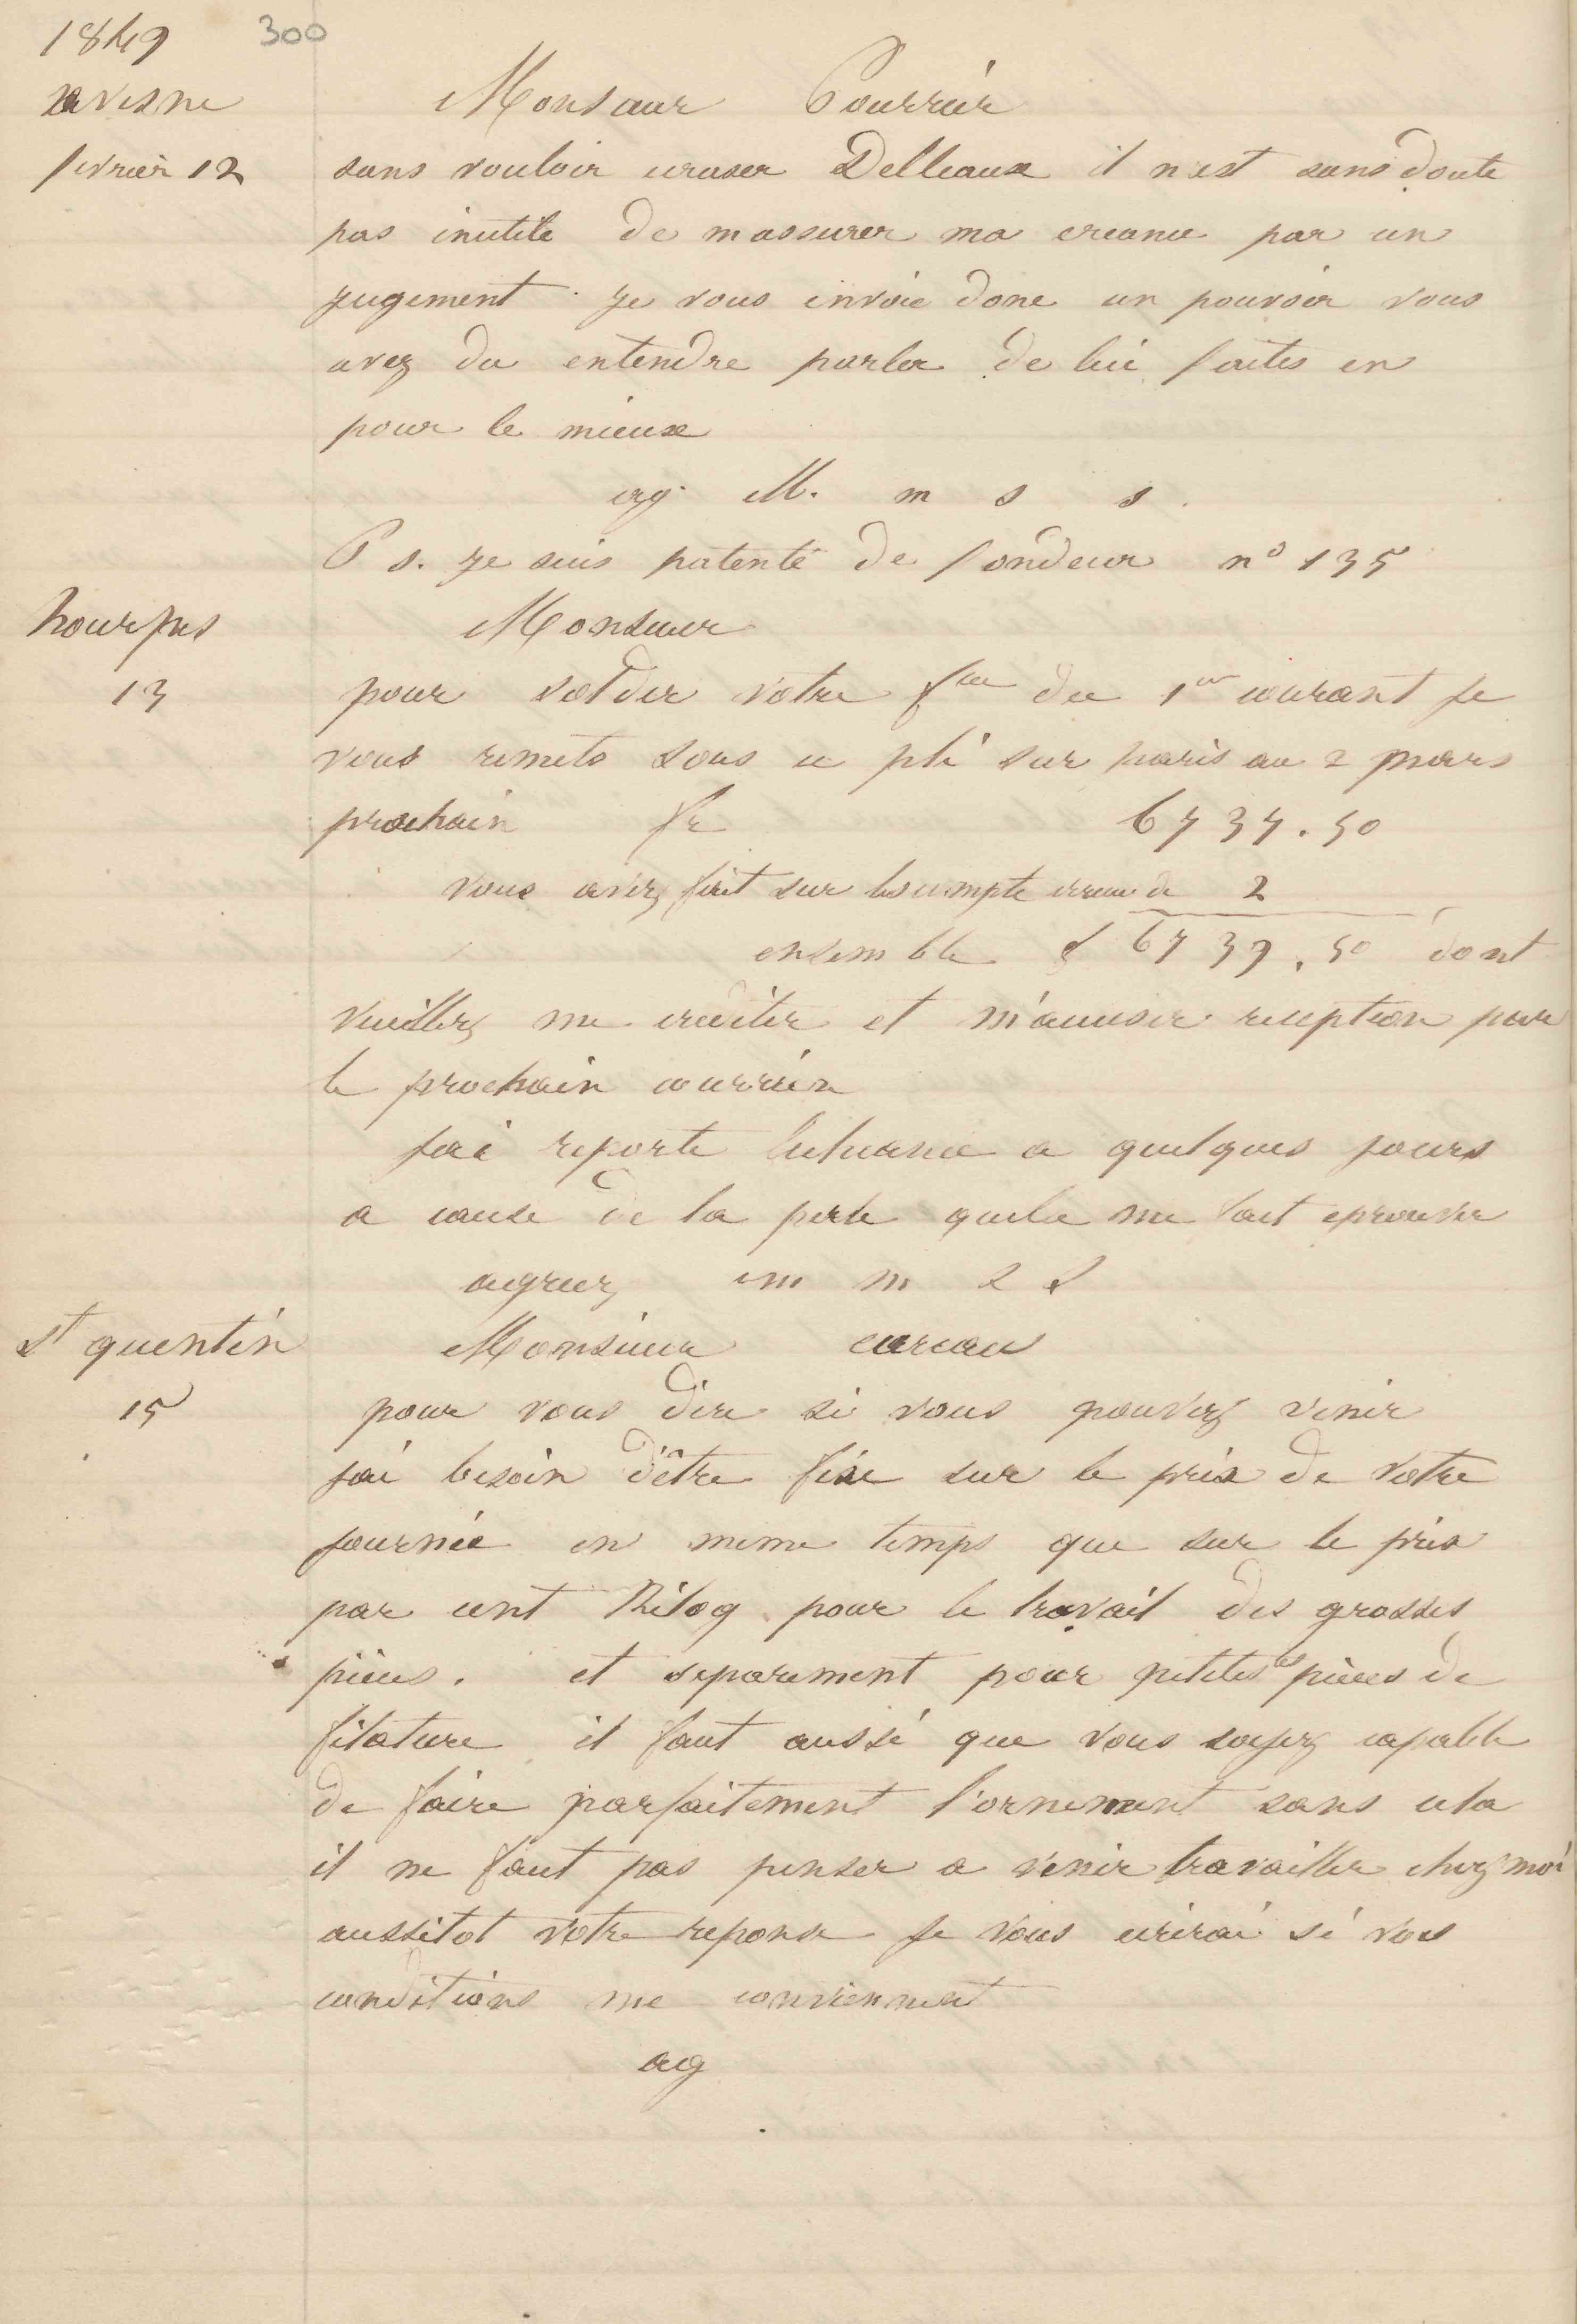 1849 300
avesne
fevrier 12
Monsieur Pourrier
sans vouloir ecraser Delleaux il n'est sans doute
pas inutile de massurer ma creance par un
jugement je vous envoie donc un pouvoir vous
avez du entendre parler de lui faites en
pour le mieux
ag. M. m s s.
P s. je suis patenté de fondeur n° 135
hourpes
13
Monsieur
pour solder votre fre du 1er courant je
vous remets sous ce pli sur paris au 2 mars
prochain fr 6737.50
vous avez fait sur l'escompte erreur de 2
ensemble f 6739.50 dont
veuillez me crediter et m'accuser reception par
le prochain courrier
jai reporte lecheance a quelques jours
a cause de la perte quelle me fait eprouver
agreez m m s s
st quentin
15
Monsieur careau
pour vous dire si vous pouvez venir
jai besoin d'être fixe sur le prix de votre
journée en meme temps que sur le prix
par cent Kilog pour le travail des grosses
pieces. et separement pour petites les pieces de
filature il faut aussi que vous soyez capable
de faire parfaitement l'ornement sans cela
il ne faut pas penser a venir travailler chez moi
aussitot votre reponse je vous ecrirai si vos
conditions me conviennent
ag